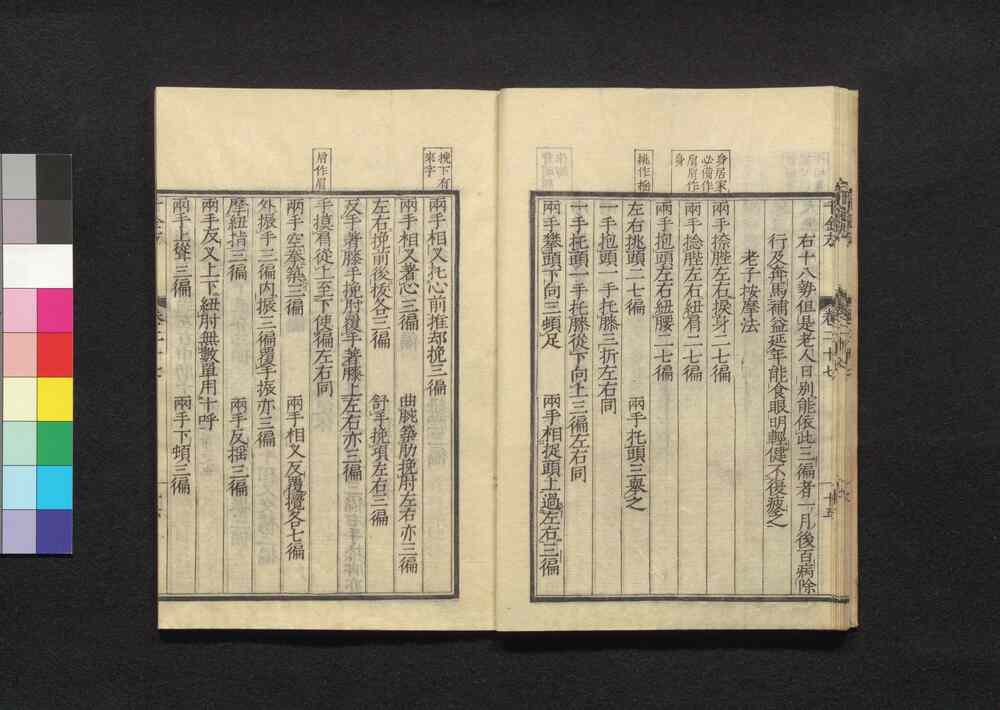 右十八勢但是老人日別能依此三徧者一月後百病除
行及奔馬補益延年能食眼明輕健不復疲乏
老子按摩法
兩手捺䏶左右捩身二七徧
兩手捻䏶左右紐肩二七徧
兩手抱頭左右紐腰二七徧
左右挑頭二七徧　兩手托頭三舉之
一手抱頭一手托膝三折左右同
一手托頭一手托膝從下向上三徧左右同
兩手攀頭下向三頓足　兩手相捉頭上過左右三徧
兩手相叉托心前推却挽三徧
兩手相叉著心三徧　曲腕築肋挽肘左右亦三徧
左右挽前後拔各三徧　舒手挽項左右三徧
反手著膝手挽肘覆手著膝上左右亦三徧
手摸肩從上至下使徧左右同
兩手空拳築三徧　兩手相叉反覆攪各七徧
外振手三徧內振三徧覆手振亦三徧
摩紐指三徧　兩手反搖三徧
兩手反叉上下紐肘無數單用十呼
兩手上聳三徧　兩手下頓三徧
卷二十七
挑作㧌
挽下有
來字
肩作眉